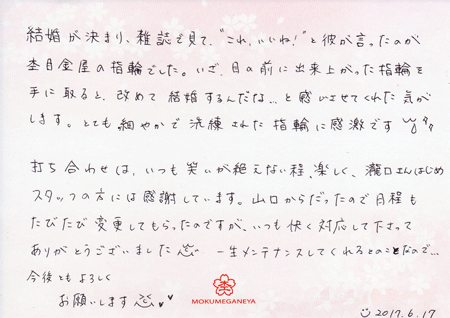 結婚が決まり、雑誌で見て、"これ、いいね!"と彼が言ったのが
杢目金屋の指輪でした。いざ、目の前に出来上がった指輪を
手に取ると、改めて結婚するんだな…と感じさせてくれた気が
します。とても細やかで洗練された指輪に感激です
打ち合わせは、いつも笑いが絶えない程、楽しく、瀧口さんはじめ
スタッフの方には感謝しています。山口からだったので日程も
たびたび変更してもらったのですが、いつも快く対応して下さって
ありがとうございました 一生メンテナンスしてくれるとのことなので…
今後ともよろしく
お願いします ♥♥
MOKUMEGANEYA
2017.6.17